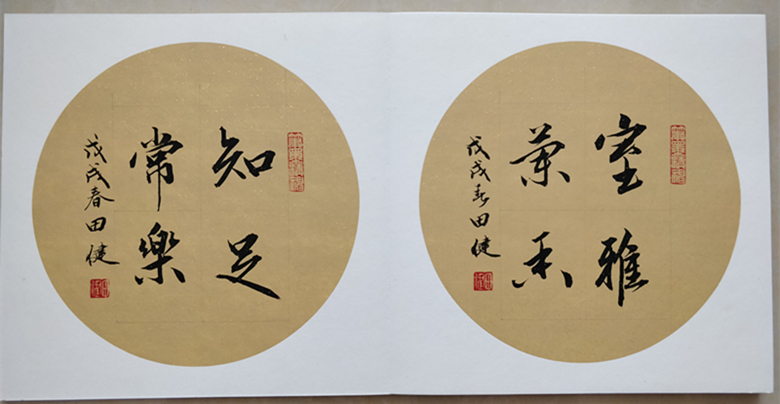 室雅
蘭香
戊戌春田健
知足
常樂
戊戌春田健